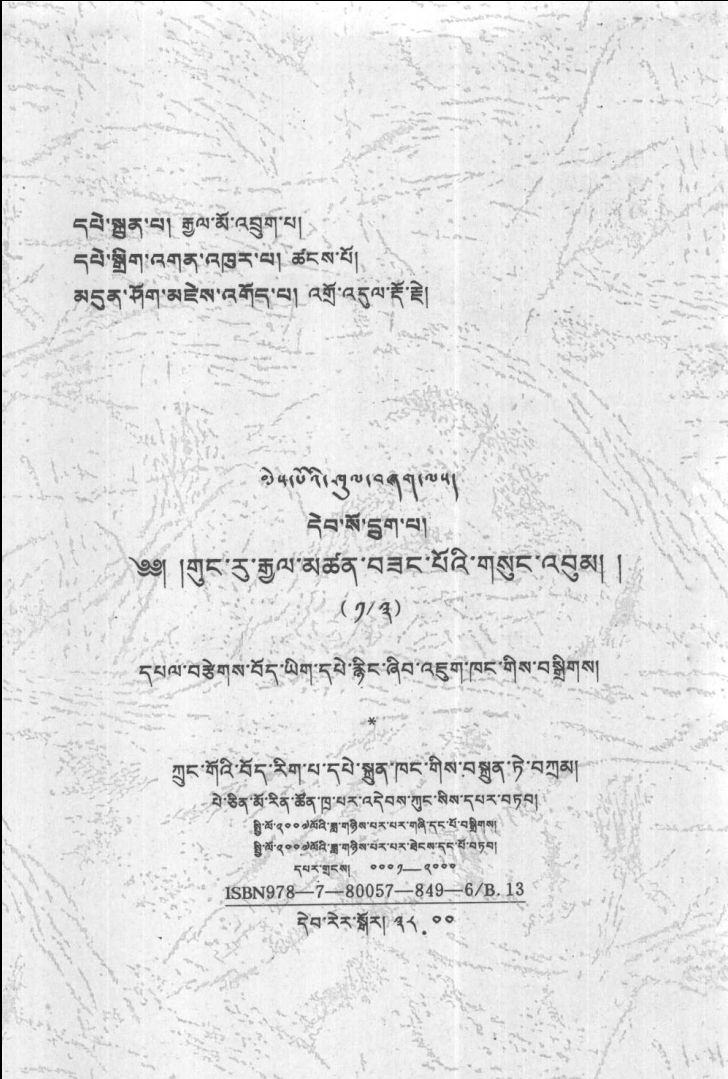 དཔེ་སྐྲུན་པ། རྒྱལ་མོ་འབྲུག་པ།
དཔེ་སྒྲིག་འགན་འཁུར་པ། ཚངས་པོ།
མདུན་ཤོག་མཛེས་འགོད་པ། འགྲོ་འདུལ་རྡོ་རྗེ།
དེབ་སོ་དྲུག་པ།
༄༅། །གུང་རུ་རྒྱལ་མཚན་བཟང་པོའི་གསུང་འབུམ། །
(༡/༣)
དཔལ་བརྩེགས་བོད་ཡིག་དཔེ་རྙིང་ཞིབ་འཇུག་ཁང་གིས་བསྒྲིགས།
*
ཀྲུང་གོའི་བོད་རིག་པ་དཔེ་སྐྲུན་ཁང་གིས་བསྐྲུན་ཏེ་བཀྲམ།
པེ་ཅིན་མོ་རིན་ཚོན་ཁྲ་པར་འདེབས་ཀུང་སིས་དཔར་བཏབ།
སྤྱི་ལོ་༢༠༠༧ལོའི་ཟླ་གཉིས་པར་པར་གཞི་དང་པོ་བསྒྲིགས།
སྤྱི་ལོ་༢༠༠༧ལོའི་ཟླ་གཉིས་པར་པར་ཐེངས་དང་པོ་བཏབ།
དཔར་གྲངས། ༠༠༠༡—༢༠༠༠
ISBN978—7—80057—849—6/B. 13
དེབ་རེར་སྒོར། ༣༨.༠༠